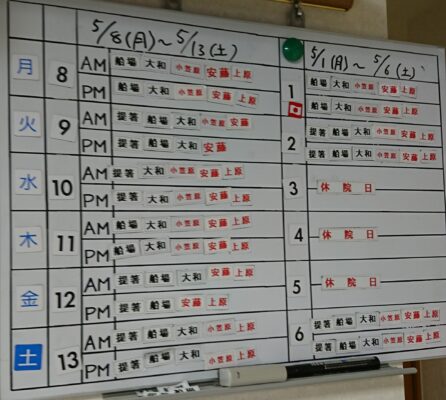 5/8(月)～5/13(土)
月 8 AM 船場 大和 小笠原 安藤 上原
PM 船場 大和 小笠原 安藤 上原
火 9 AM 提箸 船場 大和 小笠原 安藤
PM 提箸 船場 大和 安藤
水 10 AM 提箸 大和 小笠原 安藤 上原
PM 提箸 大和 小笠原 安藤 上原
木 11 AM 船場 大和 小笠原 安藤 上原
PM 船場 大和 小笠原 安藤 上原
金 12 AM 提箸 船場 大和 安藤 上原
PM 提箸 船場 安藤 上原
土 13 AM 提箸 船場 大和 小笠原 上原
PM 提箸 船場 大和 小笠原 上原
5/1(月)～5/6(土)
1 船場 大和 小笠原 安藤 上原
船場 大和 小笠原 安藤 上原
2 提箸 船場 大和 小笠原 安藤 上原
提箸 船場 大和 安藤 上原
3 休院日
4 休院日
5 休院日
6 提箸 船場 大和 小笠原 安藤 上原
提箸 船場 大和 小笠原 安藤 上原